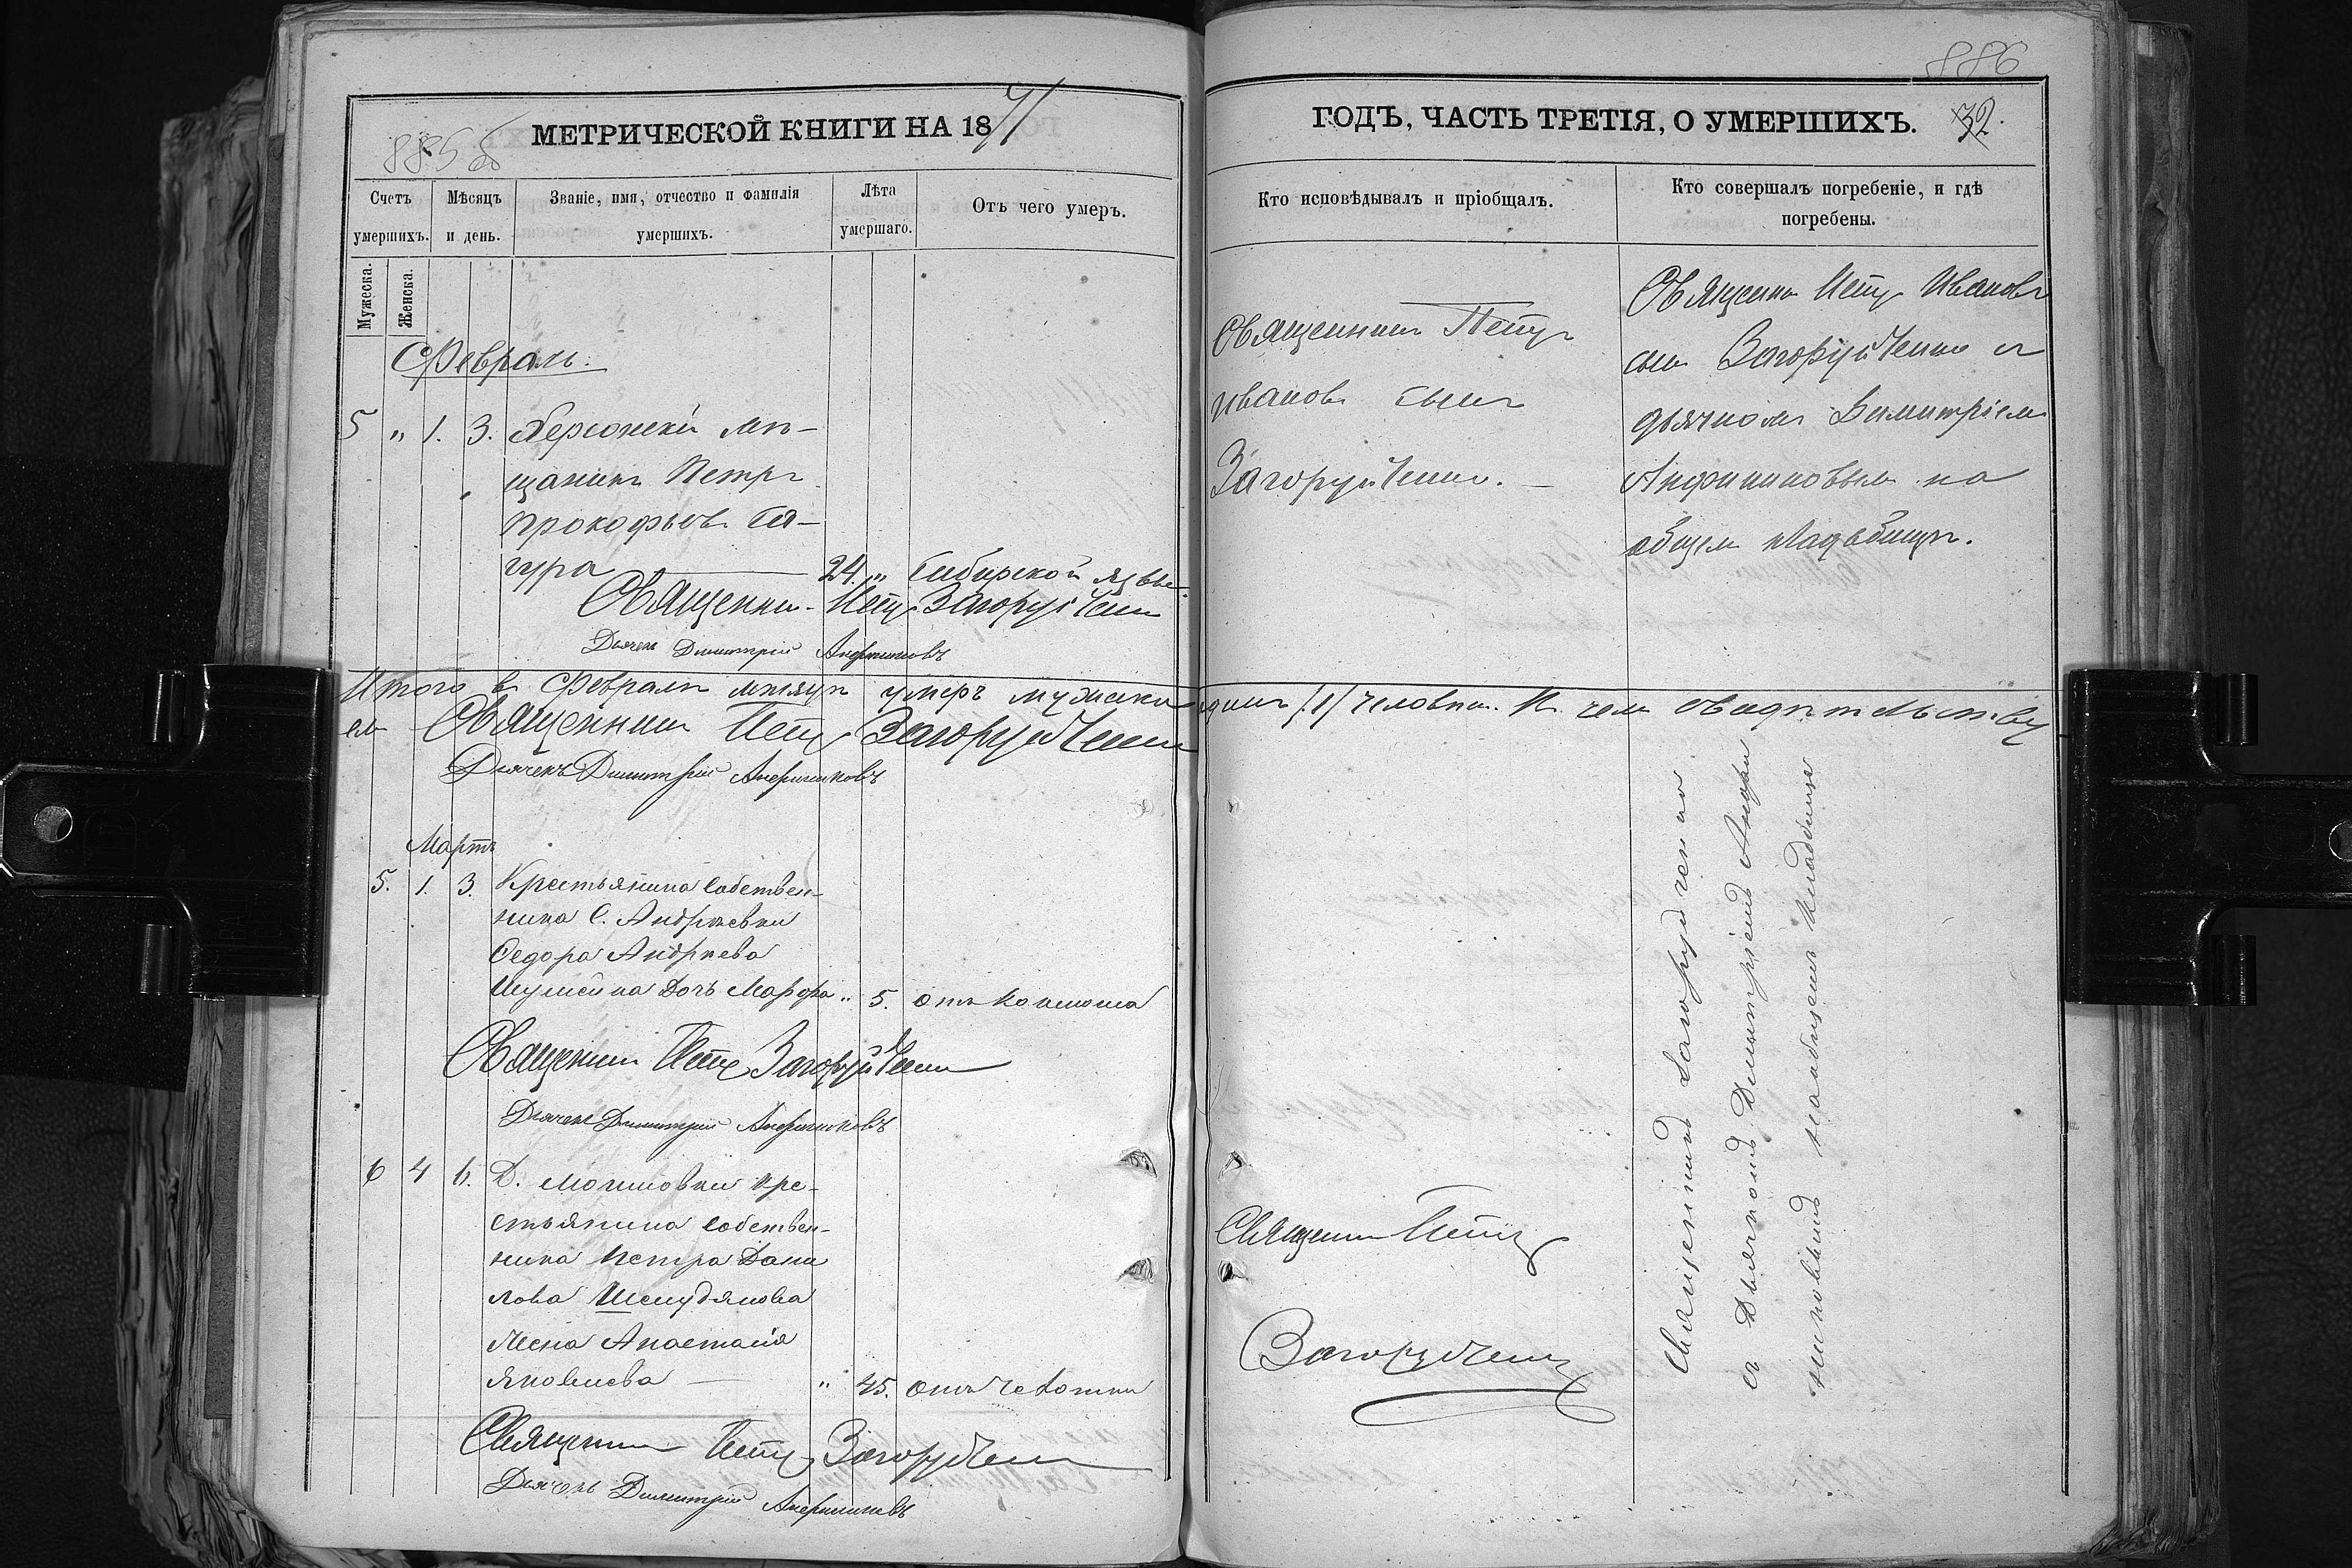 886
МЕТРИЧЕСКОЙ КНИГИ НА 1871
ГОДЪ, ЧАСТЬ ТРЕТІЯ, О УМЕРШИХЪ. 32.
885
Счетъ умершихъ.
Мужеска.
Женска.
Мѣсяцъ и день.
Званіе, имя, отчество и фамилія умершихъ.
Лѣта умершаго.
Отъ чего умеръ.
Кто исповѣдывалъ и пріобщалъ.
Кто совершалъ погребеніе, и гдѣ погребены.
Февраль.
5 " 1. 3. Херсонскій мѣ-
щанинъ Петръ
Прокофьевъ
гура 24. " Сибирской язвы
Священникъ Петръ Загоруйченко
Дьячекъ Димитрій Анфиногеновъ
Священникъ Петръ
Ивановъ сынъ
Загоруйченко.
Священникъ Петръ Ивановъ
сынъ Загоруйченко съ
дьячкомъ Димитріемъ
на
общемъ кладбищѣ.
Итого въ Февралѣ мѣсяцѣ умеръ мужеска одинъ /1/ человѣкъ. Въ чемъ свидѣтельству
емъ Священникъ Петръ Загоруйченко
Дьячекъ Димитрій
Мартъ
5. 1. 3. Крестьянина собствен-
ника С. Андреевки
Федора Андреева
Дочь Марфа " 5. отъ коклюша
Священникъ Петръ Загоруйченко
Дьячекъ Димитрій
6 4 6. Д. кре-
стьянина собствен-
ника Петра Дани
лова Шелудякова
жена Анастасія
Яковлева " 45. отъ чахотки
Священникъ Петръ Загоруйченко
Дьячекъ Димитрій
Священникъ Петръ
Загоруйченко
Священникъ Загоруйченко
съ Дьячкомъ Димитріемъ
на общемъ кладбищѣ